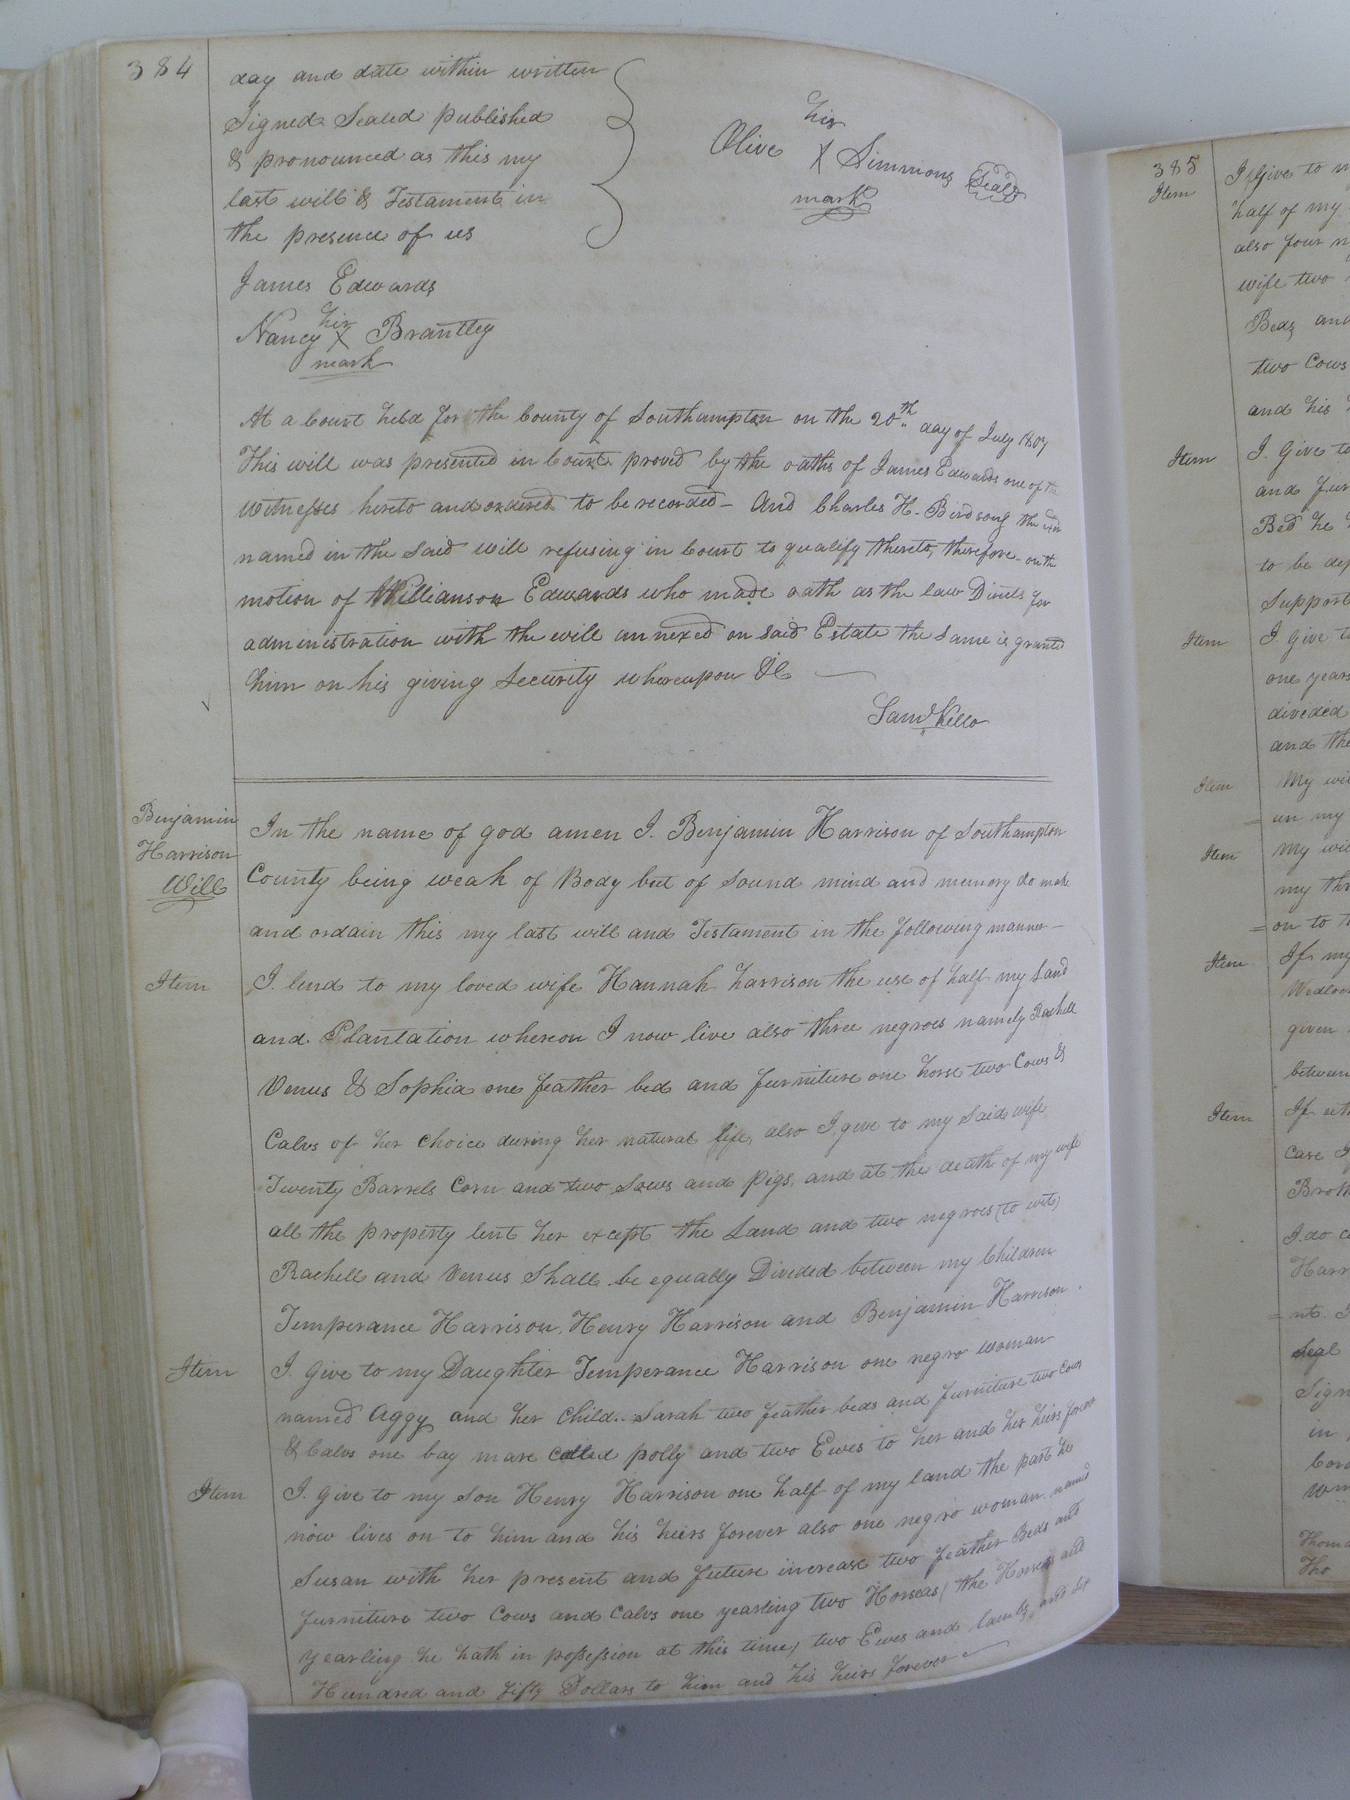 384
day and date within written
Signed Sealed published
& pronounced as this my
last will & Testament in
the presence of us
his
Olive X Simmons Seal
mark
James Edwards
his
Nancy X Brantley
mark
At a Court held for the County of Southampton on the 20th day of July 1807
This will was presented in Court proved by the oaths of James Edwards one of the
Witnesses hereto and ordered to be recorded - And Charles H. Birdsong the exor
named in the said will refusing in Court to qualify thereto, therefore on the
motion of Williamson Edwards who made oath as the law Directs for
administration with the will annexed on said Estate the same is granted
him on his giving Security whereupon &c
Saml Kello
Benjamin
Harrison
Will
In the name of god amen I. Benjamin Harrison of Southampton
County being weak of Body but of sound mind and memory do make
and ordain this my last will and Testament in the following manner -
Item I. lend to my loved wife Hannah harrison the use of half my Land
and Plantation whereon I now live also three negroes namely Rachell
Venus & Sophia one feather bed and furniture one horse two Cows &
Calvs of her choice during her natural life, also I, give to my said wife
Twenty Barrels Corn and two Sows and pigs, and at the death of my wife
all the property lent her except the Land and two negroes (to wit)
Rachell and Venus Shall be equally Divided between my Children
Temperance Harrison, Henry Harrison and Benjamin Harrison.
Item I. Give to my Daughter Temperance Harrison one negro woman
named Aggy and her child.. Sarah two feather beds and furniture two Cows
& Calvs one bay mare called polly and two Ewes to her and her heirs forever
Item I. Give to my son Henry Harrison one half of my land the part he
now lives on to him and his heirs forever also one negro woman named
Susan with her present and future increase two feather Beds and
furniture two Cows and Calvs one yearling two Horseas (the Horseas and
yearling he hath in possession at this time) two Ewes and lambs, and
Hundred and fifty Dollars to him and his heirs forever
385
Item I Give to
half of my
also four
wife two
Beds and
two Cows
and his
Item I. Give to
and fur
Bed he
to be
Support
Item I. Give
one years
divided
and the
Item My
on my
Item My
my
on to
Item If my
given
Item If
case
I. do
in